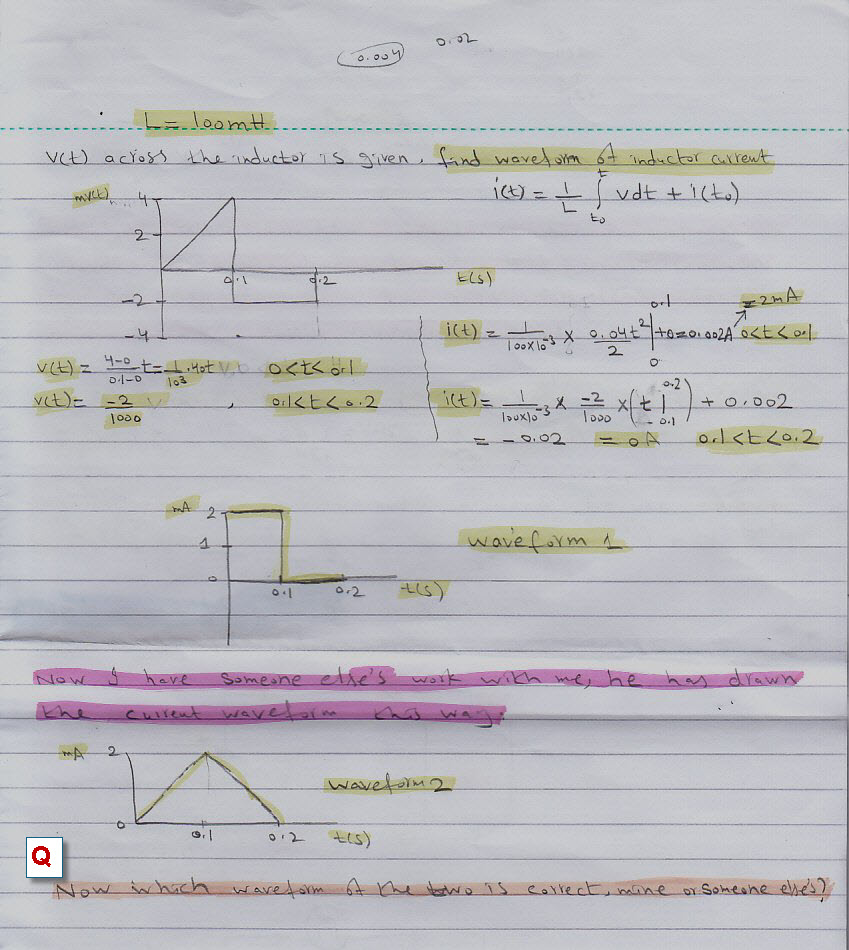 0.004 0.02
L = 100mH
V(t) across the inductor is given, find waveform of inductor current
i(t) = 1/L ∫ t t₀ v dt + i(t₀)
mv(t) 4
2
-2
-4
0.1 0.2 t(s)
= 2mA
i(t) = 1/100×10⁻³ × 0.04t²/2 | 0.1 0 + 0 = 0.002A 0<t<0.1
v(t) = 4-0/0.1-0 t = 1/10³ . 40t 0<t<0.1
v(t) = -2/1000 , 0.1<t<0.2
i(t) = 1/100×10⁻³ × -2/1000 × (t | 0.2 0.1) + 0.002
= -0.02 = 0A 0.1<t<0.2
mA 2
1
0
0.1 0.2 t(s)
waveform 1
Now I have someone else's work with me, he has drawn
the current waveform this way.
mA 2
0
0.1 0.2 t(s)
waveform 2
Q
Now which waveform of the two is correct, mine or someone else's?